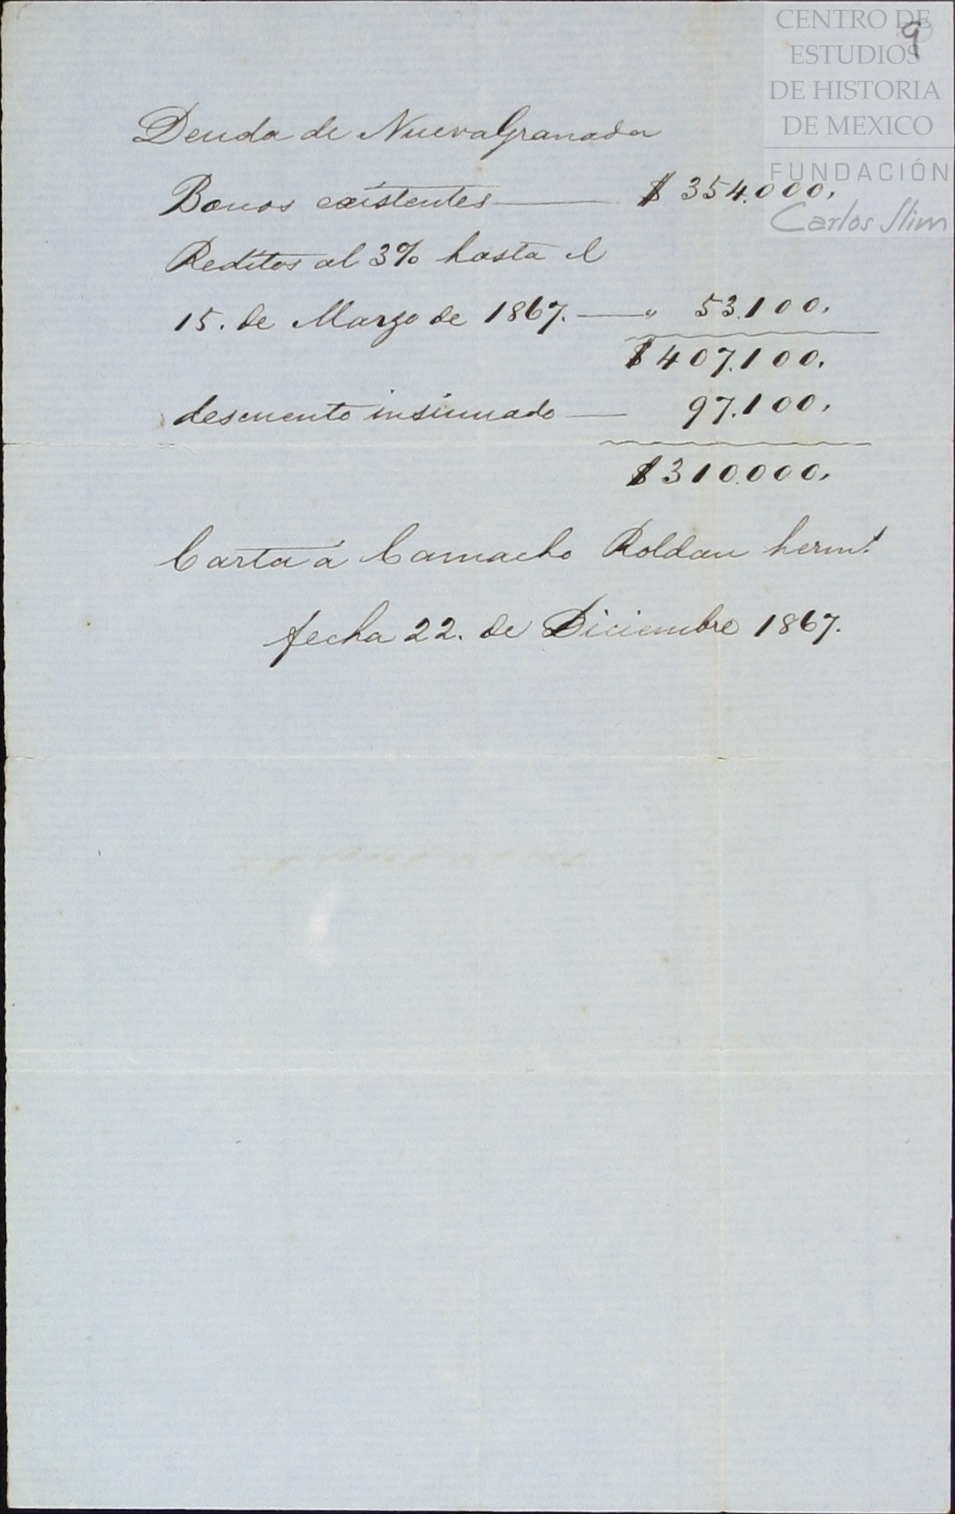 CENTRO DE
ESTUDIOS
DE HISTORIA
DE MEXICO
FUNDACIÓN
Carlos Slim
9
Deuda de Nueva Granada
Bonos existentes $ 354.000.
Reditos al 3% hasta el
15. de Marzo de 1867. " 53.100.
$ 407.100.
descuento insinuado 97.100.
$ 310.000.
Carta á Camacho Roldan herm.^s
fecha 22. de Diciembre 1867.